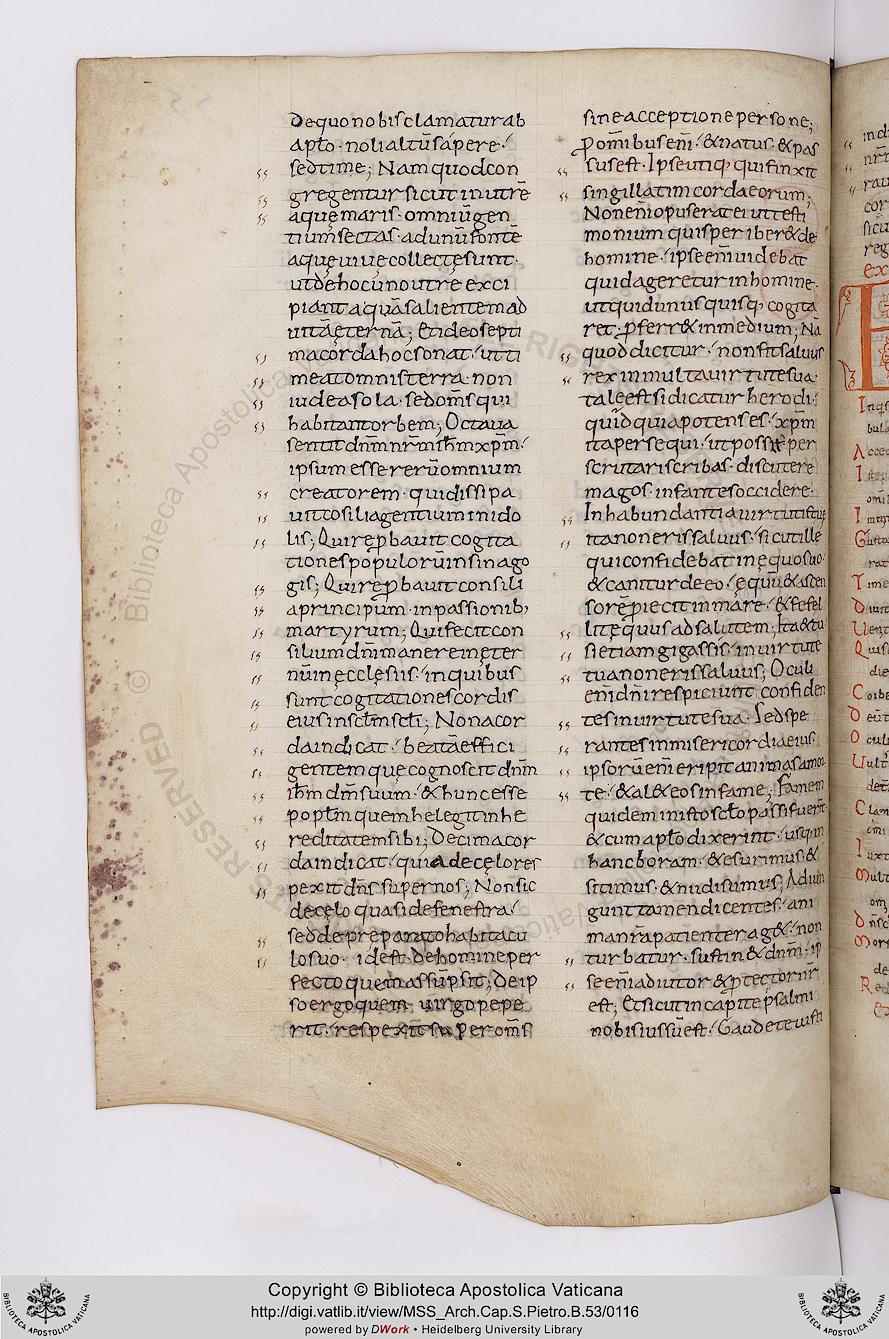 de quo nobis clamatur ab
apło · noli altū sapere ·
sed time; Nam quod con
gregentur sicut in utrē
aquę maris · omniū gen
tium sectas · ad unū fontē
aquę uiuę collectę sunt ·
ut de hoc uno utre exci
piant aquā salientem ad
uitā ęternā; Et ideo septi
ma corda hoc sonat · ut ti
meat omnis terra · non
iudea sola · sed om̄s qui
habitant orbem; Octaua
sentit dn̄m nr̄m ih̄m xp̄m ·
ipsum esse rerū omnium
creatorem · qui dissipa
uit cōsilia gentium in ido
lis; Qui rep̱bauit cogita
tiones populorū in sinago
gis; Qui rep̱bauit consili
a principum · in passionib;
martyrum; Qui fecit con
silium dn̄i manere in ęter
nūm ęcclęsiis · in quibus
sunt cogitationes cordis
eius in sc̄lm sc̄li; Nona cor
da indicat · beatā effici
gentem que cognoscit dn̄m
ih̄m dm̄ suum · & hunc esse
popl̄m quem helegit in he
reditatem sibi; Decima cor
da indicat · quia de cęlo res
pexit dn̄s super nos; Non sic
de cęlo quasi de fenestra ·
sed de preparato habitacu
lo suo · id est de homine per
fecto quem assūpsit; De ip
so ergo quem uirgo pepe
rit · respexit super om̄s
sine acceptione persone;
P̱ om̄ibus eni᷑ · & natus · & pas
sus est · Ipse utiq; qui finxit
singillatim corda eorum;
Non eni᷑ opus erat ei ut testi
monium quis periber& de
homine · ipse eni᷑ uidebat
quid ager&ur in homine ·
ut quid unusquisq; cogita
ret · p̱ferr& in medium; Nā
quod dicitur · non fit saluus
rex in multa uirtute sua ·
tale est si dicatur herodi ·
quid quia potens es · xp̄m
ita persequi · ut possis per
scrutari scribas · discutere
magos · infantes occidere ·
In habundantia uirtutis tuę
ita non eris saluus · sicut ille
qui confidebat in ęquo suo ·
& canitur de eo · ęquū & ascen
sorē p̱iecit in mare · & fefel
lit ęquus ad salutem; Ita & tu
si etiam gigas sis · in uirtute
tua non eris saluus; Oculi
eni᷑ dn̄i respiciunt confiden
tes in uirtute sua · Sed spe
rantes in misericordia eius
ipsorū eni᷑ eripit animas a mor
te · & al& eos in fame; Famem
quidem in isto scl̄o passi fuer̄t
& cum apl̄o dixerint · usq; in
hanc horam · & esurimus &
sitimus · & nudi sumus; Adiun
gunt tamen dicentes · ani
ma nr̄a patienter ag& · non
turbatur · sustin& dn̄m · ip
se eni᷑ adiutor & p̱tector nr̄
est; Et sicut in capite psalmi
nobis iussū est · Gaudete iusti
Copyright © Biblioteca Apostolica Vaticana
http://digi.vatlib.it/view/MSS_Arch.Cap.S.Pietro.B.53/0116
powered by DWork • Heidelberg University Library